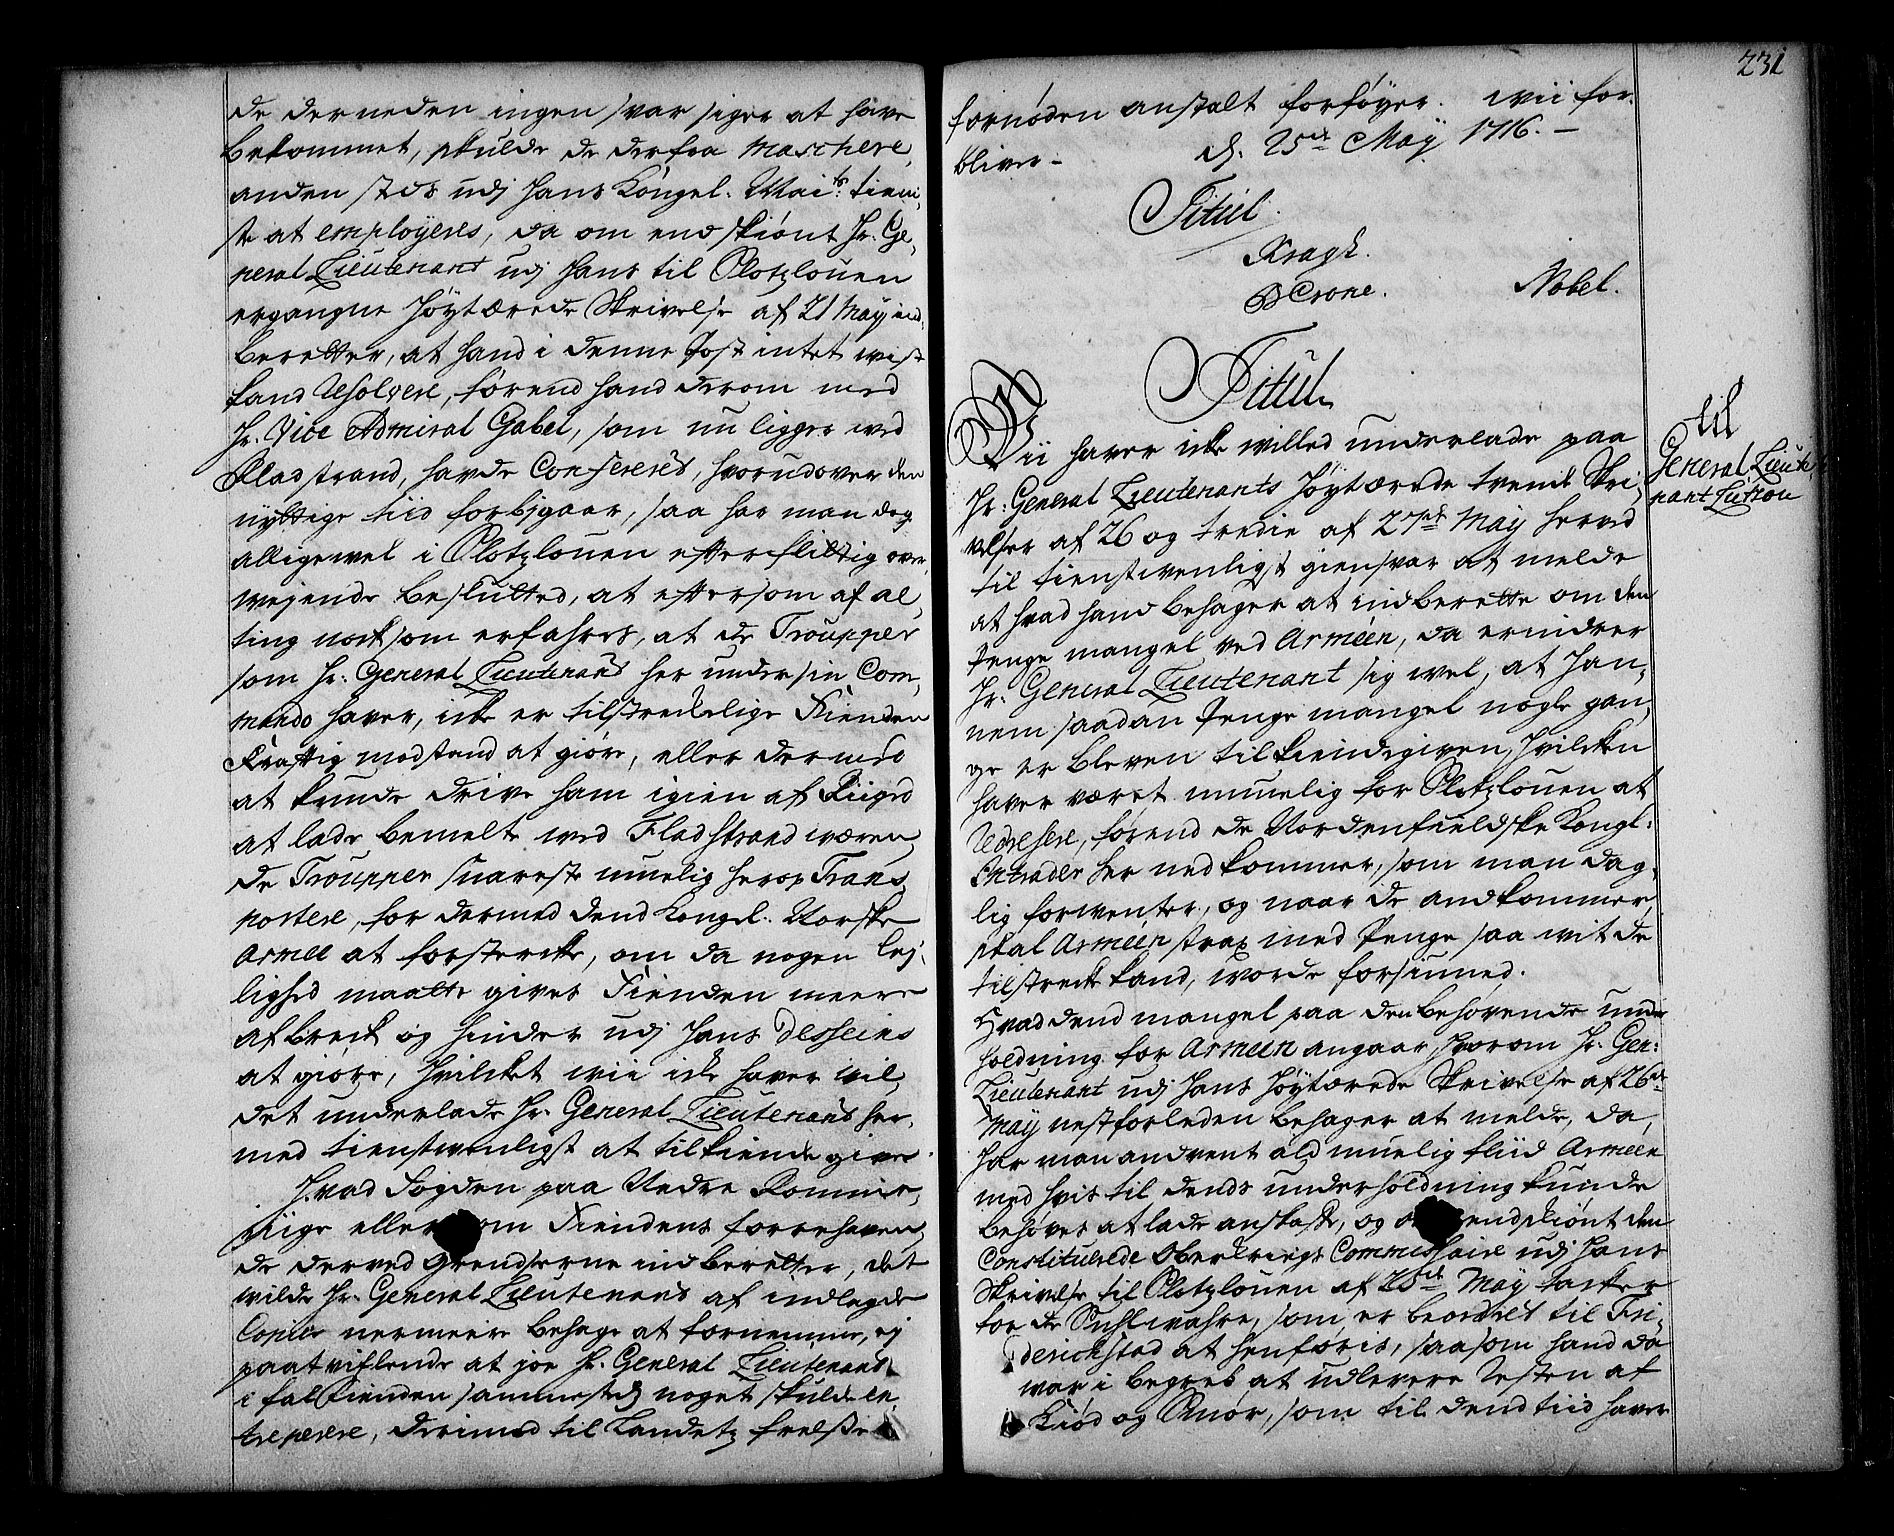 de derneden ingen svar siger at have
bekommet, skulde de derfra Marchere,
anden steds udj Hans Kongel: Mai:ts tieni-
ste at employeres, da om end skiønt Hr. Ge-
neral Lieutenant udj Hans til Slotzlouen
ergangne Høytærede Skrivelse af 21 May ind-
beretter, at hand i denne Post intet wist
kand Resolvere, førend hand derom med
Hr. Vice Admiral Gabel, som nu ligger ved
Fladstrand, hafde Confereret, hvorudover den
nyttige tiid forbjgaar, saa har man dog
alligevel i Slotzlouen efter flittig over-
wejende beslutted, at eftersom af al-
ting nock som erfahres, at de Troupper
som Hr: General Lieutenant her under sin Com-
mando haver, icke er tilstreckelige Fienden
kraftig modstand at giøre, eller dermed
at kunde drive ham igien af Riiged
at lade bemelte ved Fladstrand wæren-
de Troupper snareste muelig herop Trans-
portere, for dermed dend Kongel. Norske
Armee at forstercke, om da nogen lej-
lighed maatte gives Fienden meere
afbreck og hinder udj Hans desseins
at giøre, Hvilcket wii icke haver wil-
det underlade Hr. General Lieutenant her-
med tienstwenligst at tilkiendegive.
Hvad Fogden paa Nedre Romme-
riige eller om Fiendens forrehaven-
de derved Grendserne indberetter, det
wilde Hr. General Lieutenant af indlagde
Copier nermeere behage at fornemme, ej
paatviflende at jo Hr. General Lieutenant
i fald Fienden sammesteds noget skulde en-
treperere, derimod til Landets frelse
231
fornøden anstalt forføyer. wii for-
bliver -
d. 25de May 1716. -
Titul.
Kragh.
B Crone. Nobel.
Titul.
til
General Lieute-
nant Lützou
Wii haver icke willed underlade paa
Hr: General Lieutenants Høytærede tvende Skri-
velser af 26 og tredie af 27de May herved
til tienstwenligst giensvar at melde
at hvad hand behager at indberette om den
Penge mangel ved Arméen, da erindrer
Hr: General Lieutenant sig wel, at Han-
nem saadan Penge mangel nogle gan-
ge er bleven tilkiendegiven, hvilcken
haver været umuelig for Slotzlouen at
Redresere, førend de Nordenfieldske Kongl:
Intrader her ned kommer, som man dag-
lig forwenter, og naar de andkommer,
skal Arméen strax med Penge saa wit de
tilstrecke kand, worde forsiuned.
Hvad dend mangel paa den behovende under
holdning for Arméen angaar, Hvorom Hr. Gen:
Lieutenant udj Hans Høytærede Skrivelse af 26de
May nestforleden behager at melde, da,
har man andvent ald muelig fliid Arméen
med hvis til dends underholdning kunde
behøves at lade anskaffe, og om endskiønt den
Constituerede Oberkriigs Commissaire udj Hans
Skrivelse til Slotzlouen af 25de May tacker
for de Suhlwahre, som er beordret til Fri-
derichstad at henføris, saasom hand da
war i begreb at udlevere Resten af
Kiød og Smør, som til dend tiid haver